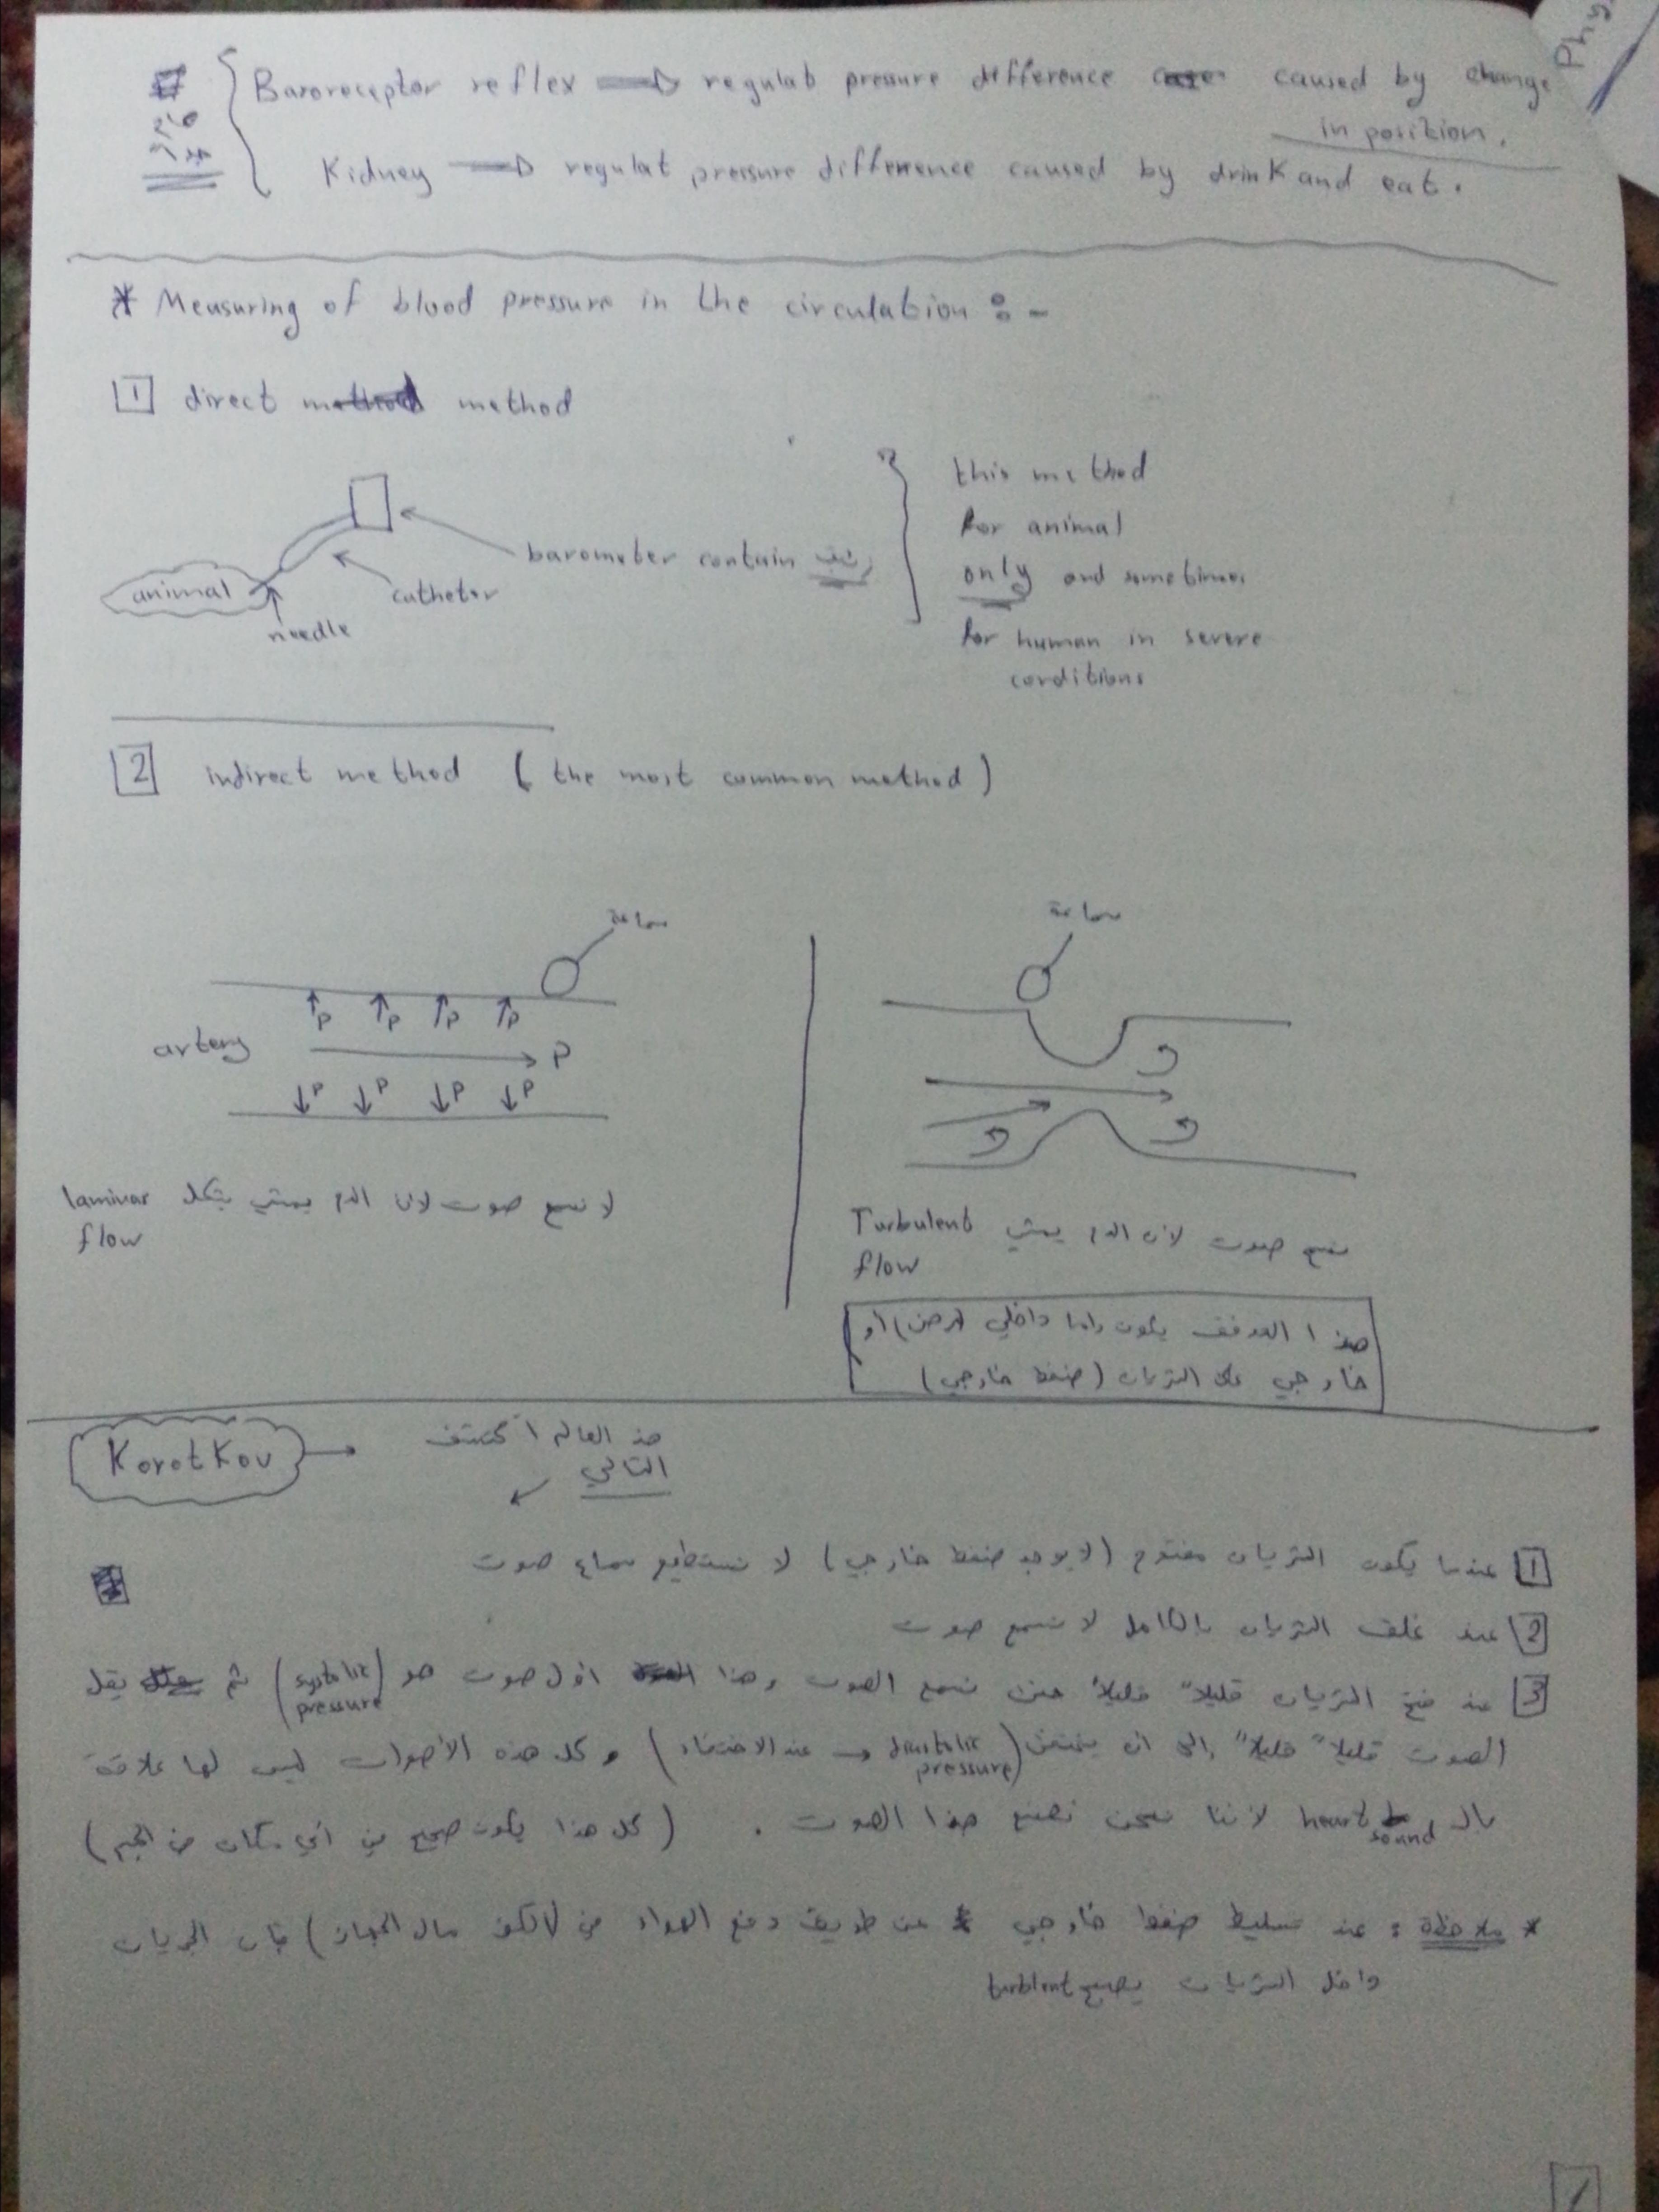 Phy
Baroreceptor reflex ⟹ regulat pressure difference caused by change
in position.
Kidney ⟹ regulat pressure difference caused by drink and eat.
* Measuring of blood pressure in the circulation :-
1 direct method
animal
needle
catheter
barometer contain زئبق
this method
for animal
only and sometimes
for human in severe
conditions
2 indirect method (the most common method)
سماعة
artery
P P P P
P
P P P P
لا نسمع صوت لان الدم يمشي بشكل laminar
flow
سماعة
نسمع صوت لأن الدم يمشي Turbulent
flow
هذا العـ يكون اما داخلي (مرض) أو
خارجي على الشريان (ضغط خارجي)
Korotkov → هذ العالم اكتشف
التالي
1 عندما يكون الشريان مفتوح (لا يوجد ضغط خارجي) لا نستطيع سماع صوت
2 عند غلق الشريان بالكامل لا نسمع صوت
3 عند فتح الشريان قليلاً قليلاً نسمع الصوت وهذا أول صوت هو (systolic pressure) ثم يقل
الصوت قليلاً قليلاً إلى ان يختفي (عند الاختفاء → diastolic pressure) وكل هذه الأصوات ليس لها علاقة
بالـ heart sound لأننا نحن نصنع هذا الصوت . (كل هذا يكون صحيح في أي مكان من الجسم)
* ملاحظة : عند تسليط ضغط خارجي عن طريق دفع الهواء من الـ مال الجهاز) فأن الجريان
داخل الشريان يصبح turblent